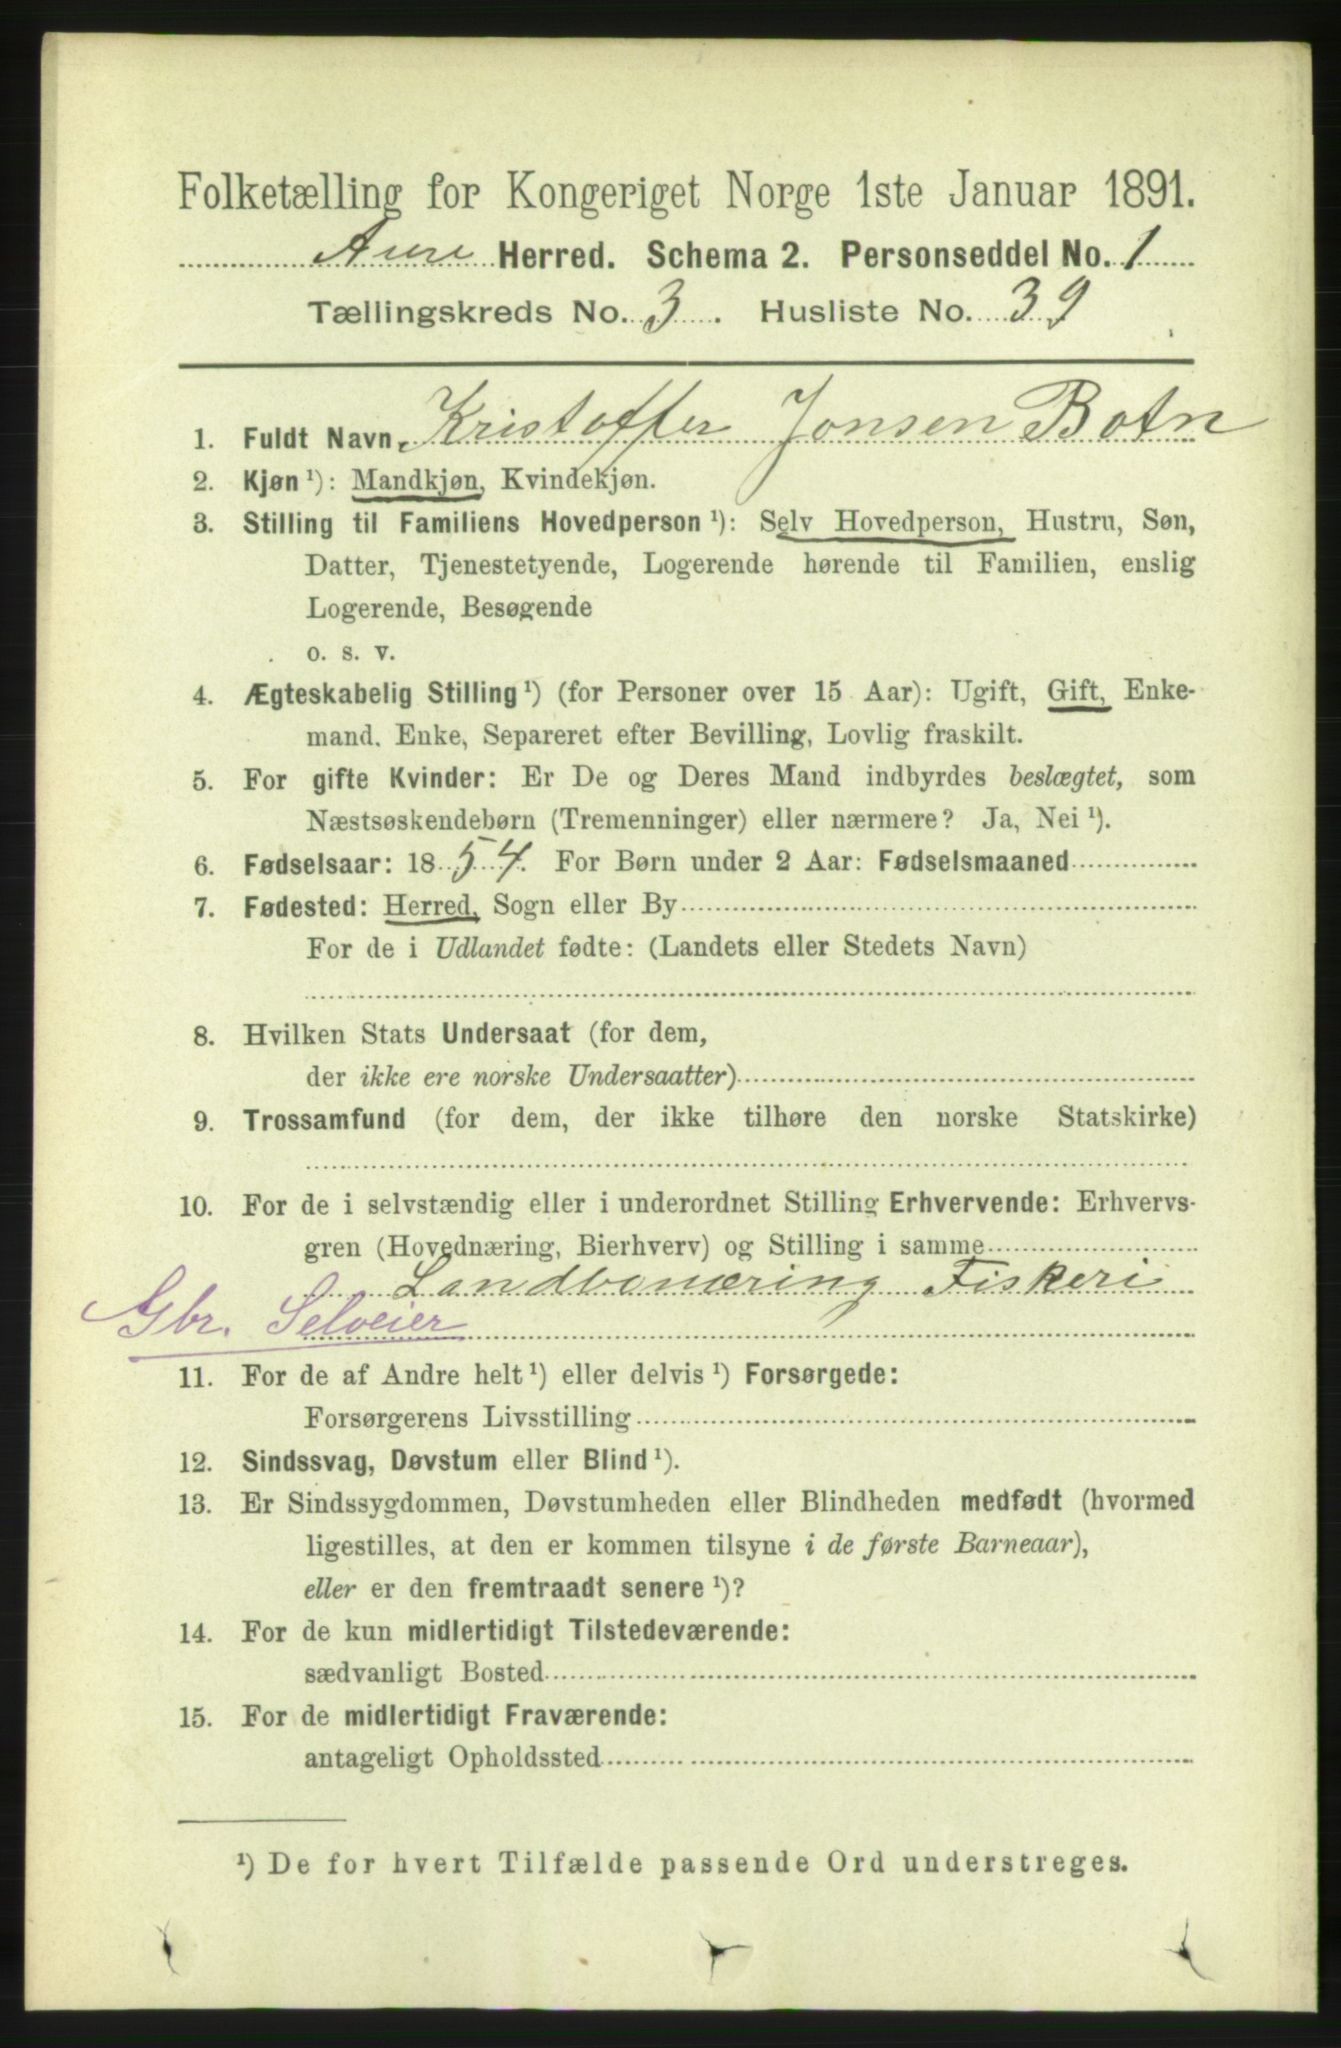 Folketælling for Kongeriget Norge 1ste Januar 1891.
Aure Herred. Schema 2. Personseddel No. 1
Tællingskreds No. 3. Husliste No. 39
1. Fuldt Navn, Kristoffer Jonsen Botn
2. Kjøn ¹): Mandkjøn, Kvindekjøn.
3. Stilling til Familiens Hovedperson ¹): Selv Hovedperson, Hustru, Søn,
Datter, Tjenestetyende, Logerende hørende til Familien, enslig
Logerende, Besøgende
o. s. v.
4. Ægteskabelig Stilling ¹) (for Personer over 15 Aar): Ugift, Gift, Enke-
mand. Enke, Separeret efter Bevilling, Lovlig fraskilt.
5. For gifte Kvinder: Er De og Deres Mand indbyrdes beslægtet, som
Næstsøskendebørn (Tremenninger) eller nærmere? Ja, Nei ¹).
6. Fødselsaar: 1854. For Børn under 2 Aar: Fødselsmaaned
7. Fødested: Herred, Sogn eller By
For de i Udlandet fødte: (Landets eller Stedets Navn)
8. Hvilken Stats Undersaat (for dem,
der ikke ere norske Undersaatter)
9. Trossamfund (for dem, der ikke tilhøre den norske Statskirke)
10. For de i selvstændig eller i underordnet Stilling Erhvervende: Erhvervs-
gren (Hovednæring, Bierhverv) og Stilling i samme
Landbonæring Fiskeri
Gbr. Selveier
11. For de af Andre helt ¹) eller delvis ¹) Forsørgede:
Forsørgerens Livsstilling
12. Sindssvag, Døvstum eller Blind ¹).
13. Er Sindssygdommen, Døvstumheden eller Blindheden medfødt (hvormed
ligestilles, at den er kommen tilsyne i de første Barneaar),
eller er den fremtraadt senere ¹)?
14. For de kun midlertidigt Tilstedeværende:
sædvanligt Bosted
15. For de midlertidigt Fraværende:
antageligt Opholdssted
¹) De for hvert Tilfælde passende Ord understreges.